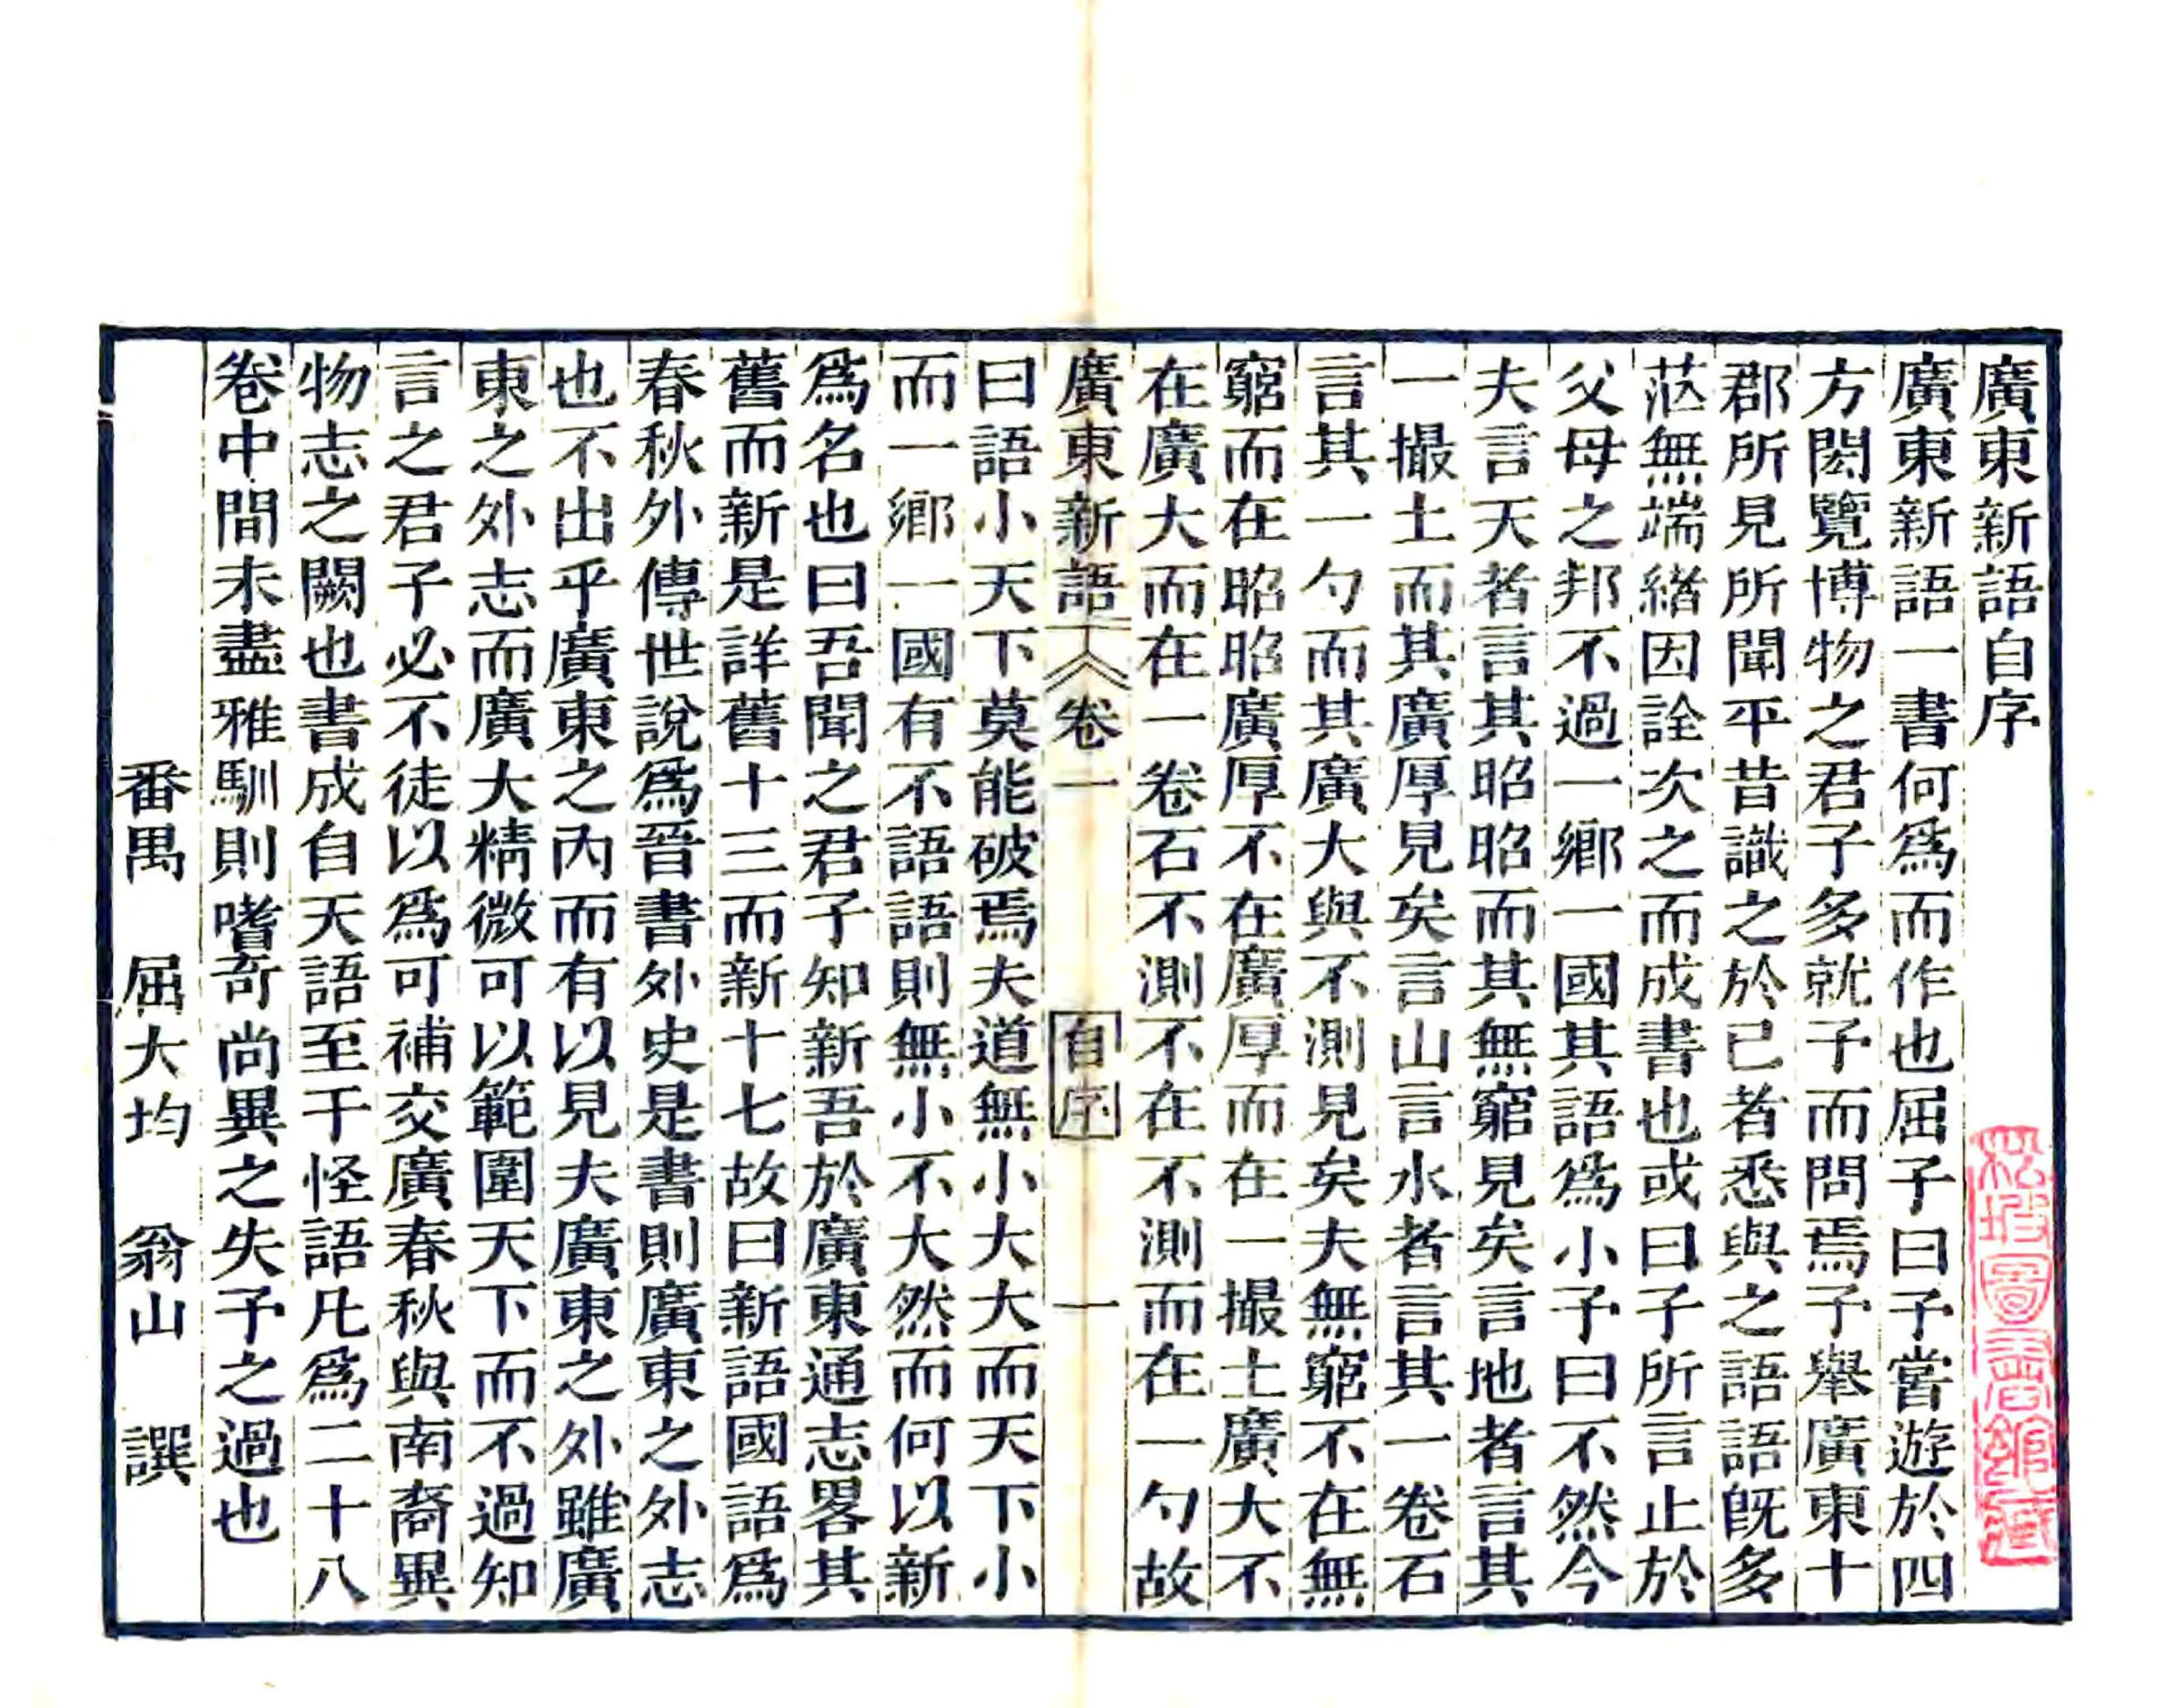 廣東新語自序
廣東新語一書何爲而作也屈子曰予嘗遊於四
方閎覽博物之君子多就予而問焉予舉廣東十
郡所見所聞平昔識之於己者悉與之語語既多
茫無端緒因詮次之而成書也或曰子所言止於
父母之邦不過一鄉一國其語爲小予曰不然今
夫言天者言其昭昭而其無窮見矣言地者言其
一撮土而其廣厚見矣言山言水者言其一卷石
言其一勺而其廣大與不測見矣夫無窮不在無
窮而在昭昭廣厚不在廣厚而在一撮土廣大不
在廣大而在一卷石不測不在不測而在一勺故
廣東新語 卷一 自序 一
曰語小天下莫能破焉夫道無小大大而天下小
而一鄉一國有不語語則無小不大然而何以新
爲名也曰吾聞之君子知新吾於廣東通志畧其
舊而新是詳舊十三而新十七故曰新語國語爲
春秋外傳世說爲晉書外史是書則廣東之外志
也不出乎廣東之內而有以見夫廣東之外雖廣
東之外志而廣大精微可以範圍天下而不過知
言之君子必不徒以爲可補交廣春秋與南裔異
物志之闕也書成自天語至于怪語凡爲二十八
卷中間未盡雅馴則嗜奇尚異之失予之過也
番禺 屈大均 翁山 譔
松坡圖書館藏